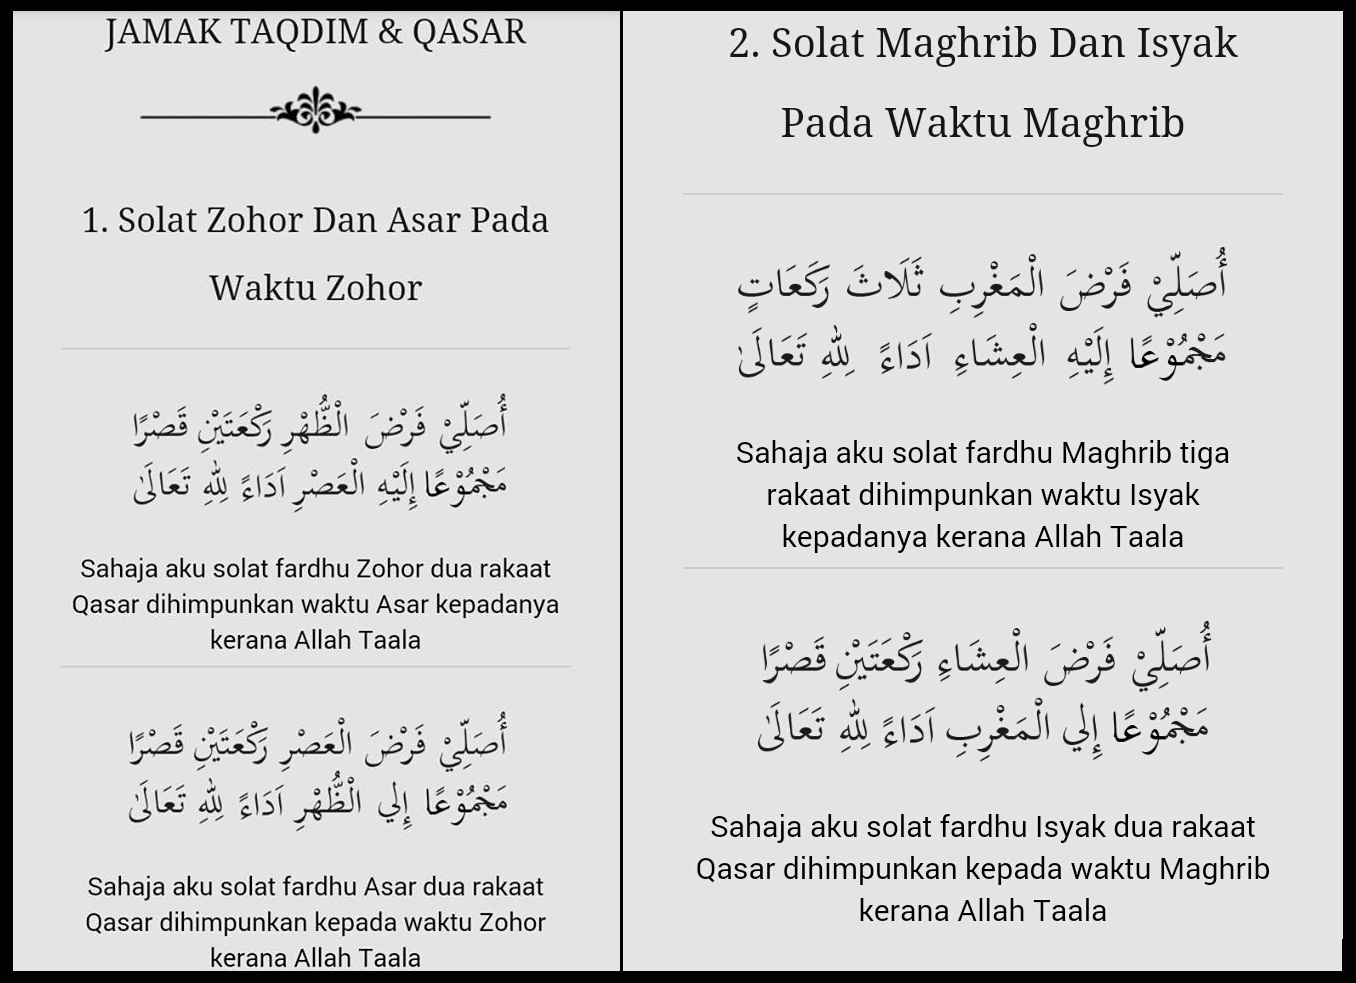 JAMAK TAQDIM & QASAR
1. Solat Zohor Dan Asar Pada
Waktu Zohor
أُصَلِّيْ فَرْضَ الْظُّهْرِ رَكْعَتَيْنِ قَصْرًا
مَجْمُوْعًا إِلَيْهِ الْعَصْرِ اَدَاءً لِلّٰهِ تَعَالَىٰ
Sahaja aku solat fardhu Zohor dua rakaat
Qasar dihimpunkan waktu Asar kepadanya
kerana Allah Taala
أُصَلِّيْ فَرْضَ الْعَصْرِ رَكْعَتَيْنِ قَصْرًا
مَجْمُوْعًا إِلي الْظُّهْرِ اَدَاءً لِلّٰهِ تَعَالَىٰ
Sahaja aku solat fardhu Asar dua rakaat
Qasar dihimpunkan kepada waktu Zohor
kerana Allah Taala
2. Solat Maghrib Dan Isyak
Pada Waktu Maghrib
أُصَلِّيْ فَرْضَ الْمَغْرِبِ ثَلَاثَ رَكَعَاتٍ
مَجْمُوْعًا إِلَيْهِ الْعِشَاءِ اَدَاءً لِلّٰهِ تَعَالَىٰ
Sahaja aku solat fardhu Maghrib tiga
rakaat dihimpunkan waktu Isyak
kepadanya kerana Allah Taala
أُصَلِّيْ فَرْضَ الْعِشَاءِ رَكْعَتَيْنِ قَصْرًا
مَجْمُوْعًا إِلي الْمَغْرِبِ اَدَاءً لِلّٰهِ تَعَالَىٰ
Sahaja aku solat fardhu Isyak dua rakaat
Qasar dihimpunkan kepada waktu Maghrib
kerana Allah Taala